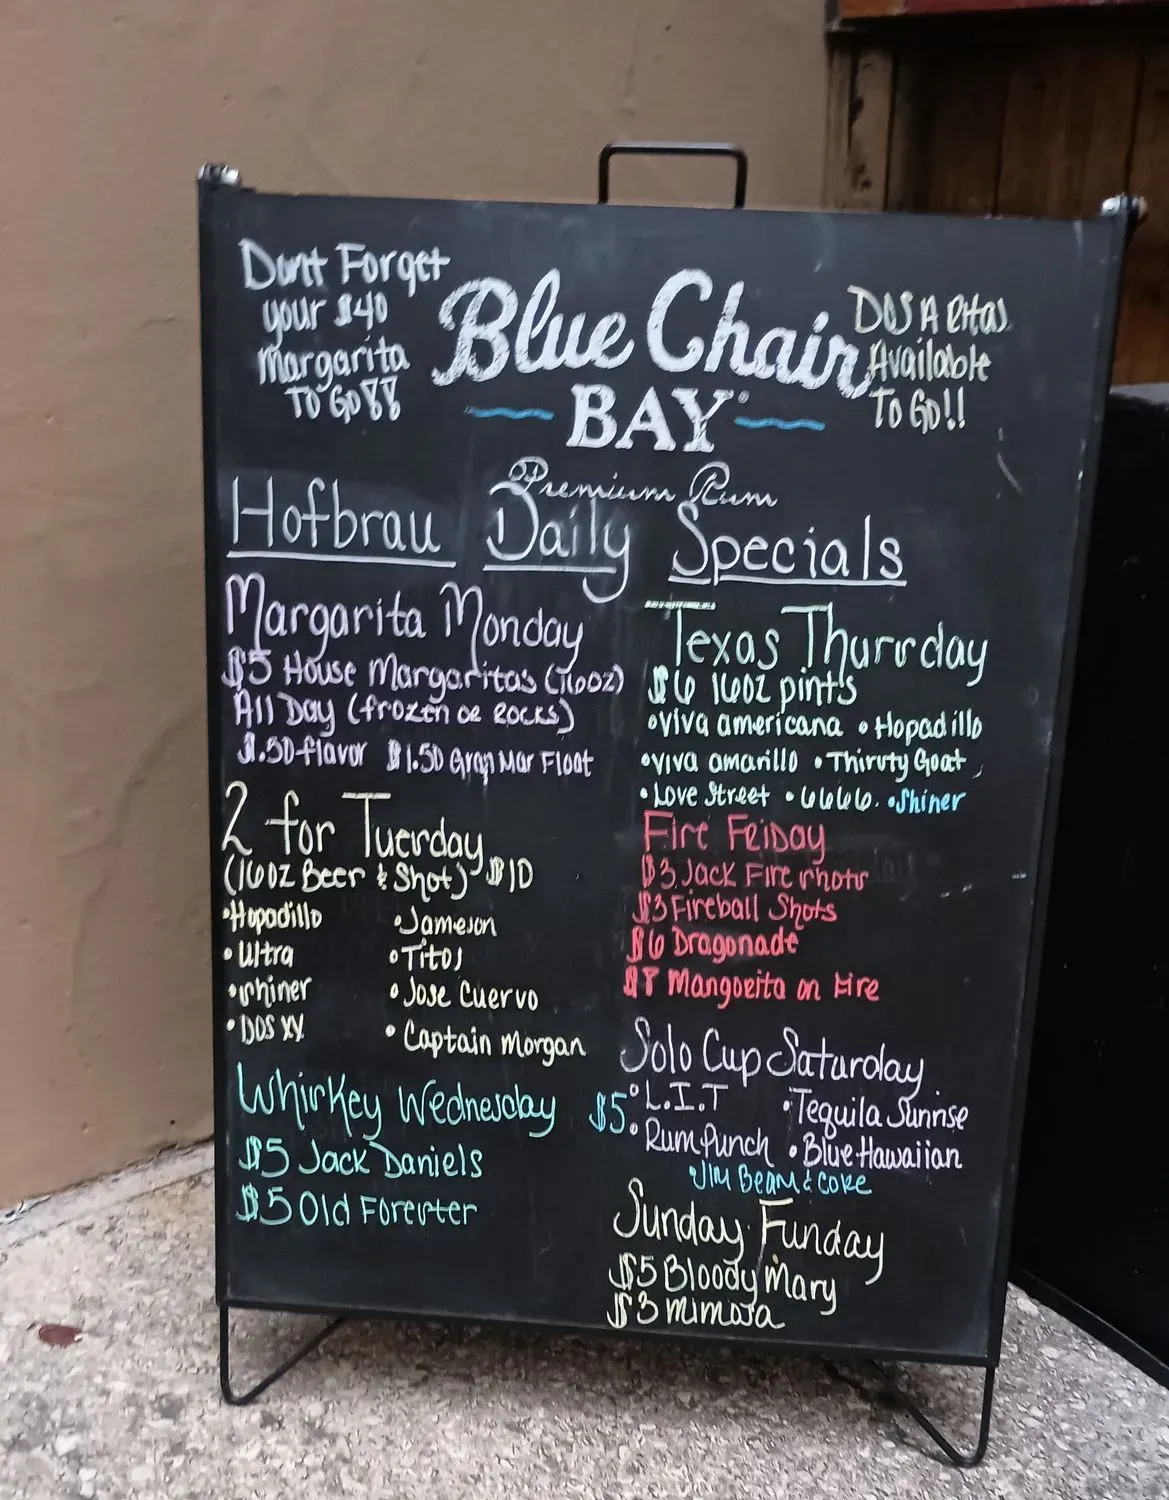 Don't Forget
your $40
Margarita
TO GO!!
Blue Chair
BAY
Premium Rum
DOS A RITAS
Available
To Go!!
Hofbrau Daily Specials
Margarita Monday
$5 House Margaritas (16oz)
All Day (frozen or Rocks)
$.50 flavor $1.50 Gran Mar Float
2 for Tuesday
(16oz Beer & Shot) $10
•Hopadillo
•Ultra
•Shiner
•DOS XX
•Jameson
•Titos
•Jose Cuervo
•Captain Morgan
Whiskey Wednesday
$5 Jack Daniels
$5 Old Forester
Texas Thursday
$6 16oz pints
•Viva americana •Hopadillo
•Viva amarillo •Thirsty Goat
•Love Street •6666 •Shiner
Fire Friday
$3 Jack Fire shots
$3 Fireball Shots
$6 Dragonade
$8 Mangorita on Fire
Solo Cup Saturday
$5 •L.I.T •Tequila Sunrise
•Rum Punch •Blue Hawaiian
•JIM BEAM & COKE
Sunday Funday
$5 Bloody Mary
$3 mimosa